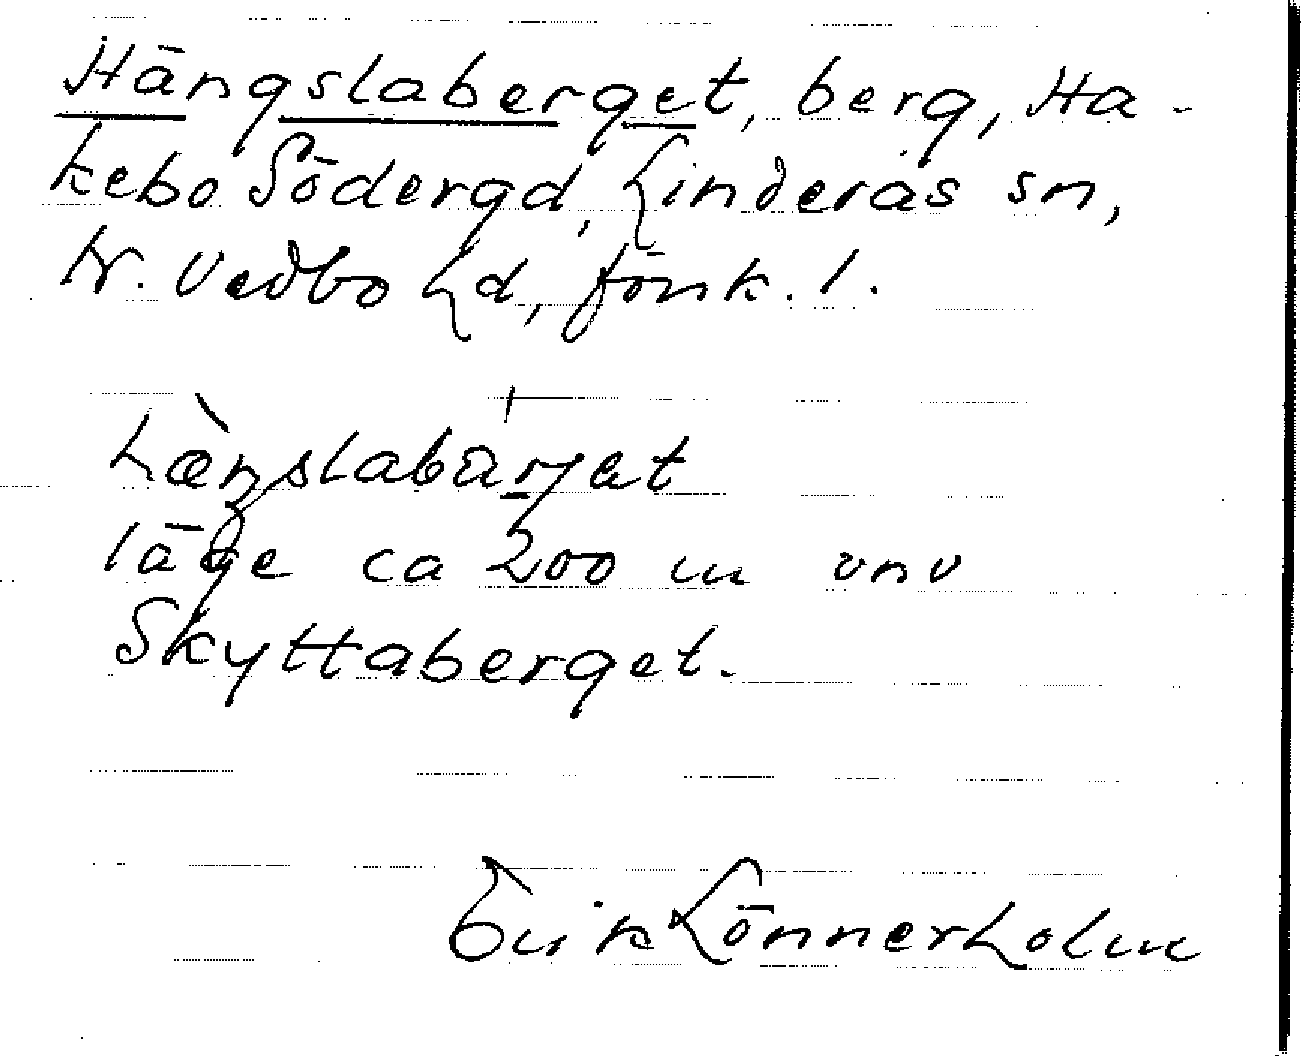 Hängslaberget, berg, Ha-
kebo Södergd, Linderås sn,
N. Vedbo hd, Jönk. l.
hæŋslabärjet
läge ca 200 m vnv
Skyttaberget.
Erik Lönnerholm